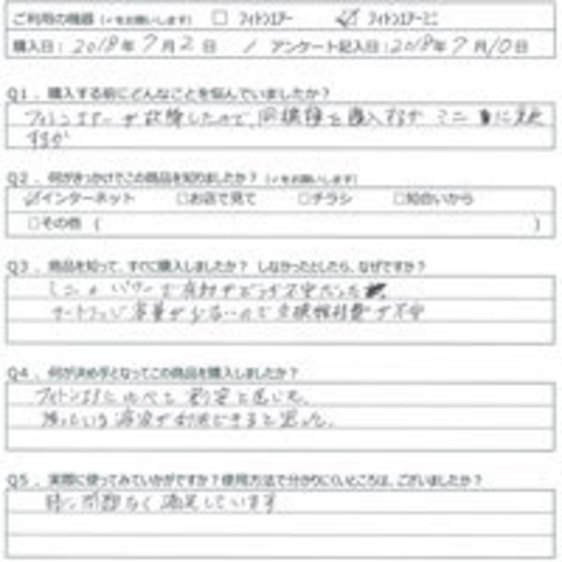 ご利用の機器（✓をお願いします） □ フィトンエアー ☑ フィトンエアーミニ
購入日：2018年7月2日 / アンケート記入日：2018年7月10日
Q1．購入する前にどんなことを悩んでいましたか？
フィトンエアーが故障したので、同機種を購入するか ミニ に変更
するか
Q2．何がきっかけでこの商品を知りましたか？（✓をお願いします）
☑インターネット □お店で見て □チラシ □知合いから
□その他（ ）
Q3．商品を知って、すぐに購入しましたか？ しなかったとしたら、なぜですか？
ミニのパワーで 不安だった
カートリッジ容量が少ないので交換 費が不安
Q4．何が決め手となってこの商品を購入しましたか？
フィトンエアーにくらべて 割安と感じた。
残っている溶液が利用できると思った。
Q5．実際に使ってみていかがですか？使用方法で分かりにくいところは、ございましたか？
特に問題なく満足しています